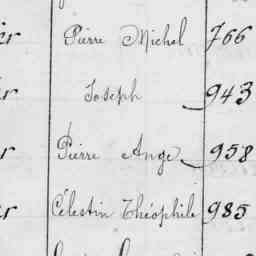 er Pierre Michel 766
er Joseph 943
er Pierre Ange 958
er Célestin Théophile 985